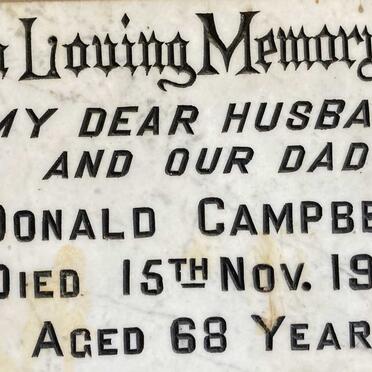 n Loving Memory
MY DEAR HUSBA
AND OUR DAD
DONALD CAMPBE
DIED 15TH NOV. 19
AGED 68 YEAR